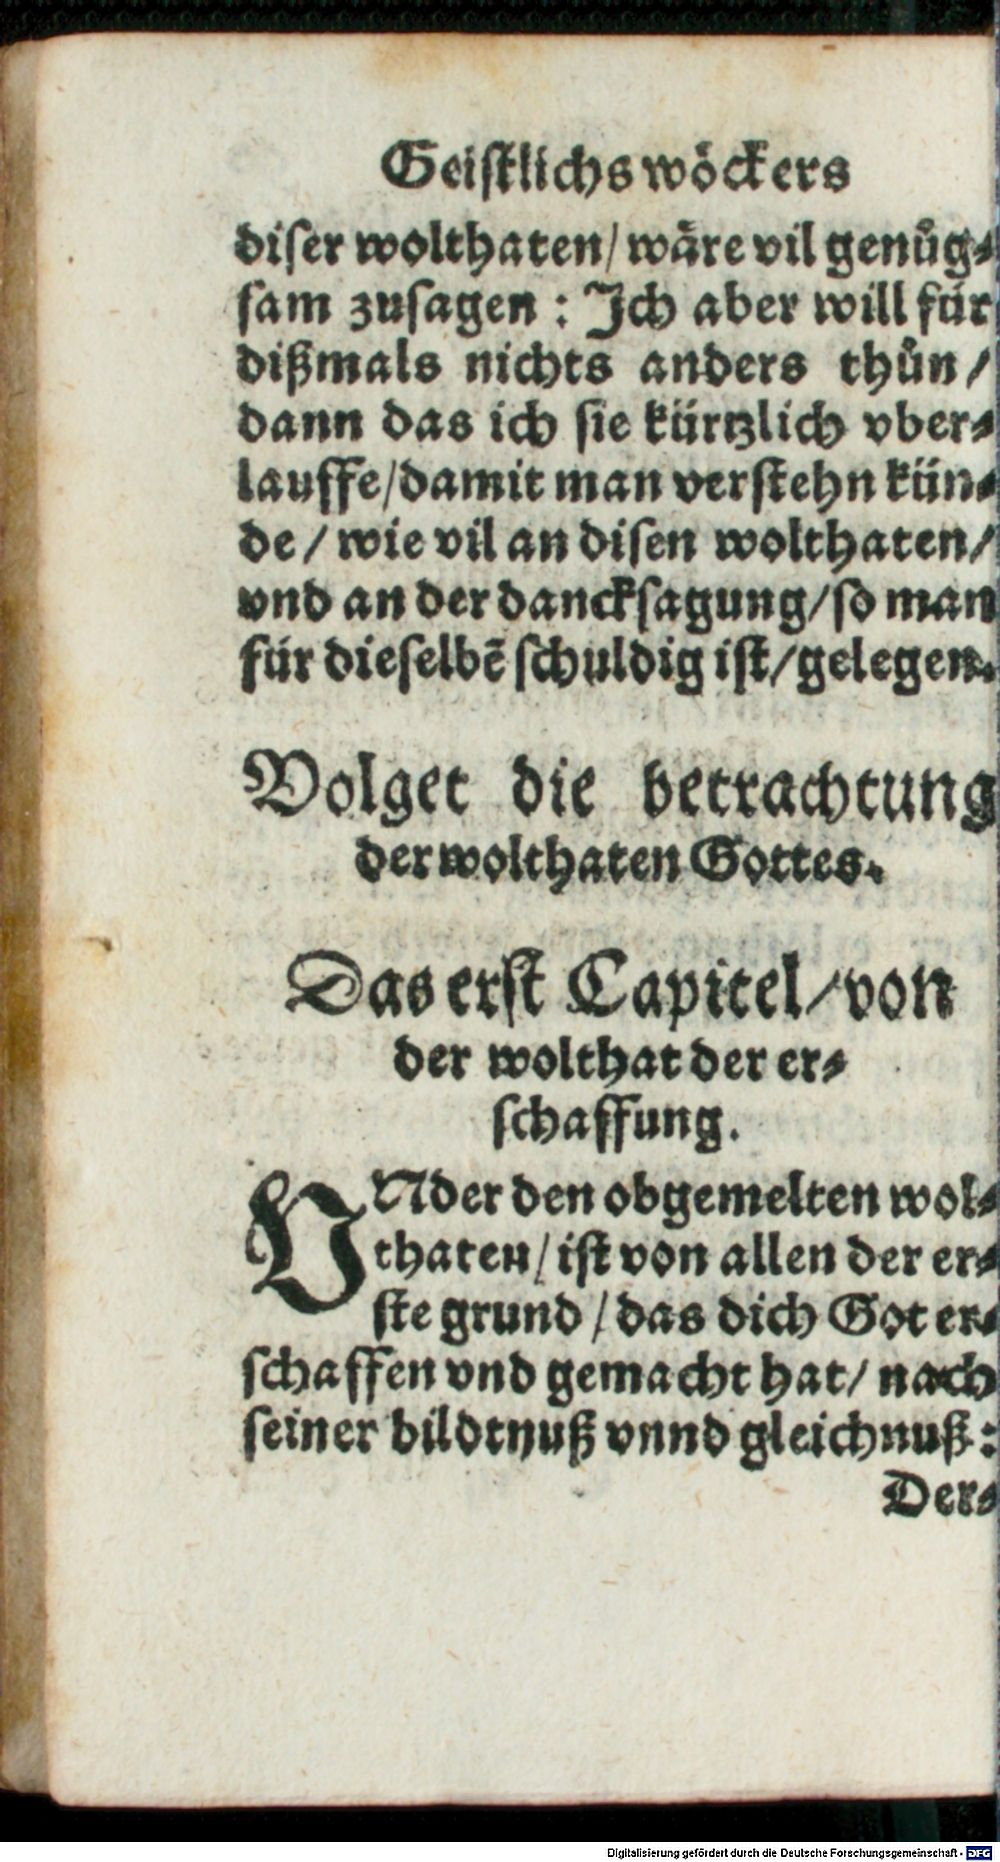 Geiſtlichs wöckers
diſer wolthaten/ wäre vil genůg-
ſam zuſagen : Ich aber will für
dißmals nichts anders thůn/
dann das ich ſie kürtzlich vber-
lauffe/damit man verſtehn kün-
de/ wie vil an diſen wolthaten/
vnd an der danckſagung/ſo man
für dieſelbē ſchuldig iſt/gelegen.
Volget die betrachtung
der wolthaten Gottes.
Das erſt Capitel/von
der wolthat der er-
ſchaffung.
VNder den obgemelten wol-
thaten/ iſt von allen der er-
ſte grund/ das dich Got er-
ſchaffen vnd gemacht hat/ nach
ſeiner bildtnuß vnnd gleichnuß:
Der-
Digitalisierung gefördert durch die Deutsche Forschungsgemeinschaft - DFG